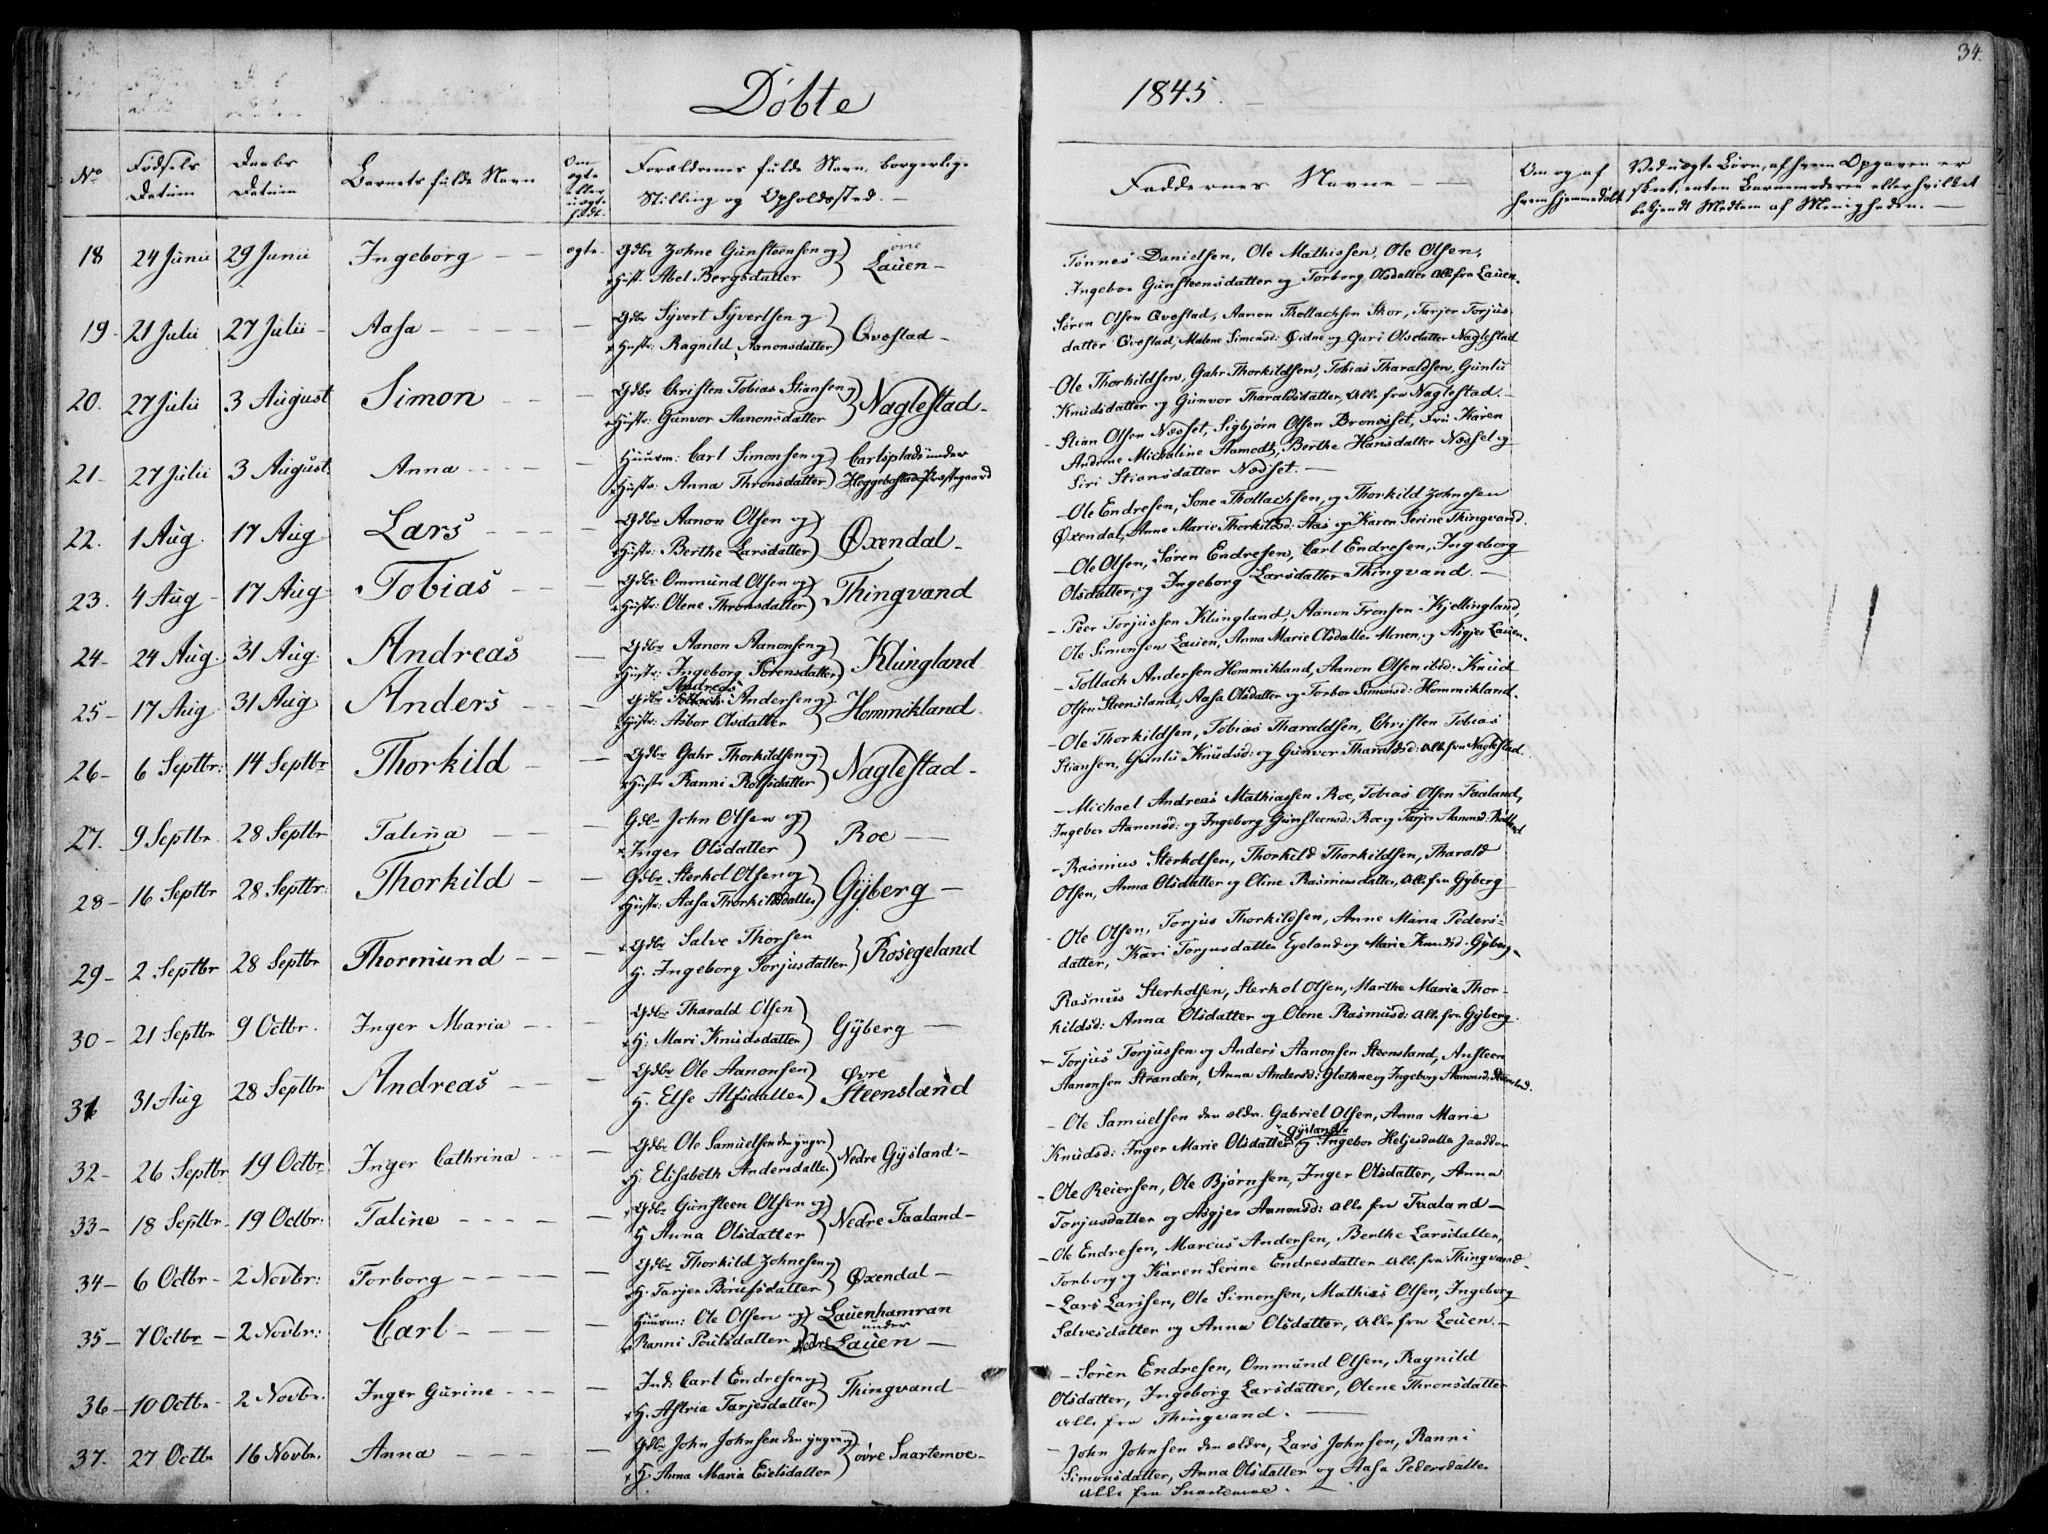 34.
Døbte 1845.
No Fødsels Datum Daabs Datum Barnets fulde Navn Om ægte eller uægte født. Forældrenes fulde Navn, borgerlige Stilling og Opholdssted. Faddernes Navne Om og af hvem hjemmedøbt Ved uægte Børn, af hvem Opgaven er skeet, enten Barnemoderen eller hvilket bekjendt Medlem af Menigheden.
18 24 Junii 29 Junii Ingeborg ægte. Gdbr Johne Gunsteensen og øvre Tønnes Danielsen, Ole Mathissen, Ole Olsen,
Hust: Abel Bergsdatter Lauen Ingebor Gunsteensdatter og Torborg Olsdatter alle fra Lauen.
19 21 Julii 27 Julii Aasa Gdbr Syvert Syvertsen og Søren Olsen Qvostad, Aanon Thollachsen Skor, Tarjer Torjus-
Hustr: Ragnild Aanonsdatter Qvostad datter Qvostad, Malene Simonsd: Øidne og Guri Olsdatter Naglestad
20. 27 Julii 3 August Simon Gdbr Christen Tobias Stiansen og Ole Thorkildsen, Gahr Thorkildsen, Tobias Tharaldsen, Gunlu
Hustr: Gunvor Aanonsdatter Naglestad Knudsdatter og Gunvor Tharaldsdatter, alle fra Naglestad.
Stian Olsen Nædset, Sigbjørn Olsen Bronesset, Fru Karen
21 27 Julii 3 August Anna Huusm: Carl Simonsen og Carlsplads under Andrine Michaline Aamodt, Berthe Hansdatter Nædset og
Hustr: Anna Thronsdatter Heggebostad Præstegaard Siri Stiansdatter Nædset.
22. 1 Aug. 17 Aug Lars Gdbr Aanon Olsen og Ole Endresen, Sone Thollachsen, og Thorkild Johnesen
Hustr: Berthe Larsdatter Øxendal Øxendal, Anne Marie Thorkildsd: Aas og Karen Serine Thingvand.
23. 4 Aug 17 Aug Tobias Gdbr Ommund Olsen og Ole Olsen, Søren Endresen, Carl Endresen, Ingeborg
Hustr: Olene Thronsdatter Thingvand Olsdatter, og Ingeborg Larsdatter Thingvand.
24 24 Aug. 31 Aug. Andreas Gdbr Aanon Aanonsen og Peer Torjussen Klungland, Aanon Tronsen Kjellingland,
Hustr: Ingeborg Sørensdatter Klungland Ole Simonsen Lauen, Anna Marie Olsdatter Monen, og Asgjer Lauen.
25 17 Aug. 31 Aug Anders Gdbr Andreas Andersen og Tollach Andersen Hommikland, Aanon Olsen ibid: Knud
Hustr: Asbor Olsdatter Hommikland. Olsen Steensland, Aasa Olsdatter og Torbor Simonsd: Hommikland.
26 6 Septbr: 14 Septbr Thorkild Gdbr Gahr Thorkildsen og Ole Thorkildsen, Tobias Tharaldsen, Christen Tobias
Hustr Ranni Rolfsdatter Naglestad Stiansen, Gunlu Knudsd: og Gunvor Tharaldsd: alle fra Naglestad.
27. 9 Septbr. 28 Septbr Talina Gdbr John Olsen og Michael Andreas Mathiassen Roe, Tobias Olsen Faaland,
Inger Olsdatter Roe Ingebor Aanensd: og Ingeborg Gunsteensd: Roe og Tarjer Aanonsd:
28 16 Septbr 28 Septbr: Thorkild Gdbr Sterkol Olsen og Rasmus Sterkolsen, Thorkild Thorkildsen, Tharald
Hustr: Aasa Thorkildsdatter Gyberg Olsen, Anna Olsdatter og Oline Rasmusdatter, alle fra Gyberg
29 2 Septbr 28 Septbr Thormund Gdbr Salve Thorsen Ole Olsen, Torjus Thorkildsen, Anne Maria Peders-
H. Ingeborg Torjusdatter Rosegeland datter, Kari Torjusdatter Egeland og Marie Knudsd: Gyberg.
30 21 Septbr 9 Octbr. Inger Maria Gdbr Tharald Olsen Rasmus Sterkolsen, Sterkol Olsen, Marthe Marie Thor-
H: Mari Knudsdatter Gyberg kildsd: Anna Olsdatter og Olene Rasmusd: alle fra Gyberg.
31 31 Aug 28 Septbr Andreas Gdbr Ole Aanonsen Øvre Torjus Torjussen og Anders Aanonsen Steensland, Ansteen
H. Else Alfsdatter Steensland Aanonsen Stranden, Anna Andersd: Glethne og Ingeborg Aanonsd: Steensland.
32 26 Septbr 19 Octbr Inger Cathrina Gdbr Ole Samuelsen den yngre Ole Samuelsen den ældr. Gabriel Olsen, Anna Marie
H: Elisabeth Andersdatter Nedre Gysland Knudsd: Inger Marie Olsdatter Gysland og Ingebor Heljesdatter Jaaddan
33 18 Septbr 19 Octbr: Taline Gdbr Gunsteen Olsen og Ole Reiersen, Ole Bjørnsen, Inger Olsdatter, Anna
H Anna Olsdatter Nedre Faaland Torjusdatter og Asgjer Aanonsd: alle fra Faaland
34 6 Octbr 2 Novbr: Torborg Gdbr Thorkild Johnesen og Ole Endresen, Marcus Andersen, Berthe Larsdatter,
H. Tarjer Børufsdatter Øxendal Torborg og Karen Serine Endresdatter alle fra Thingvand
35 7 Octbr 2 Novbr: Carl Huusm: Ole Olsen og Lauenhamran under Lars Larssen, Ole Simonsen, Mathias Olsen, Ingeborg
Ranni Poulsdatter Nedre Lauen Salvesdatter og Anna Olsdatter, alle fra Louen.
36 10 Octbr 2 Novbr. Inger Gurine Ind: Carl Endresen og Søren Endresen, Ommund Olsen, Ragnild
H. Astria Tarjesdatter Thingvand Olsdatter, Ingeborg Larsdatter, Olene Thronsdatter
alle fra Thingvand.
37. 27 Octbr 16 Novbr. Anna Gdbr John Johnsen den yngre og John Johnsen den ældre, Lars Johnsen, Ranni
H: Anna Maria Eielsdatter øvre Snartemoe Simonsdatter, Anna Olsdatter og Aasa Pedersdatter
alle fra Snartemoe.